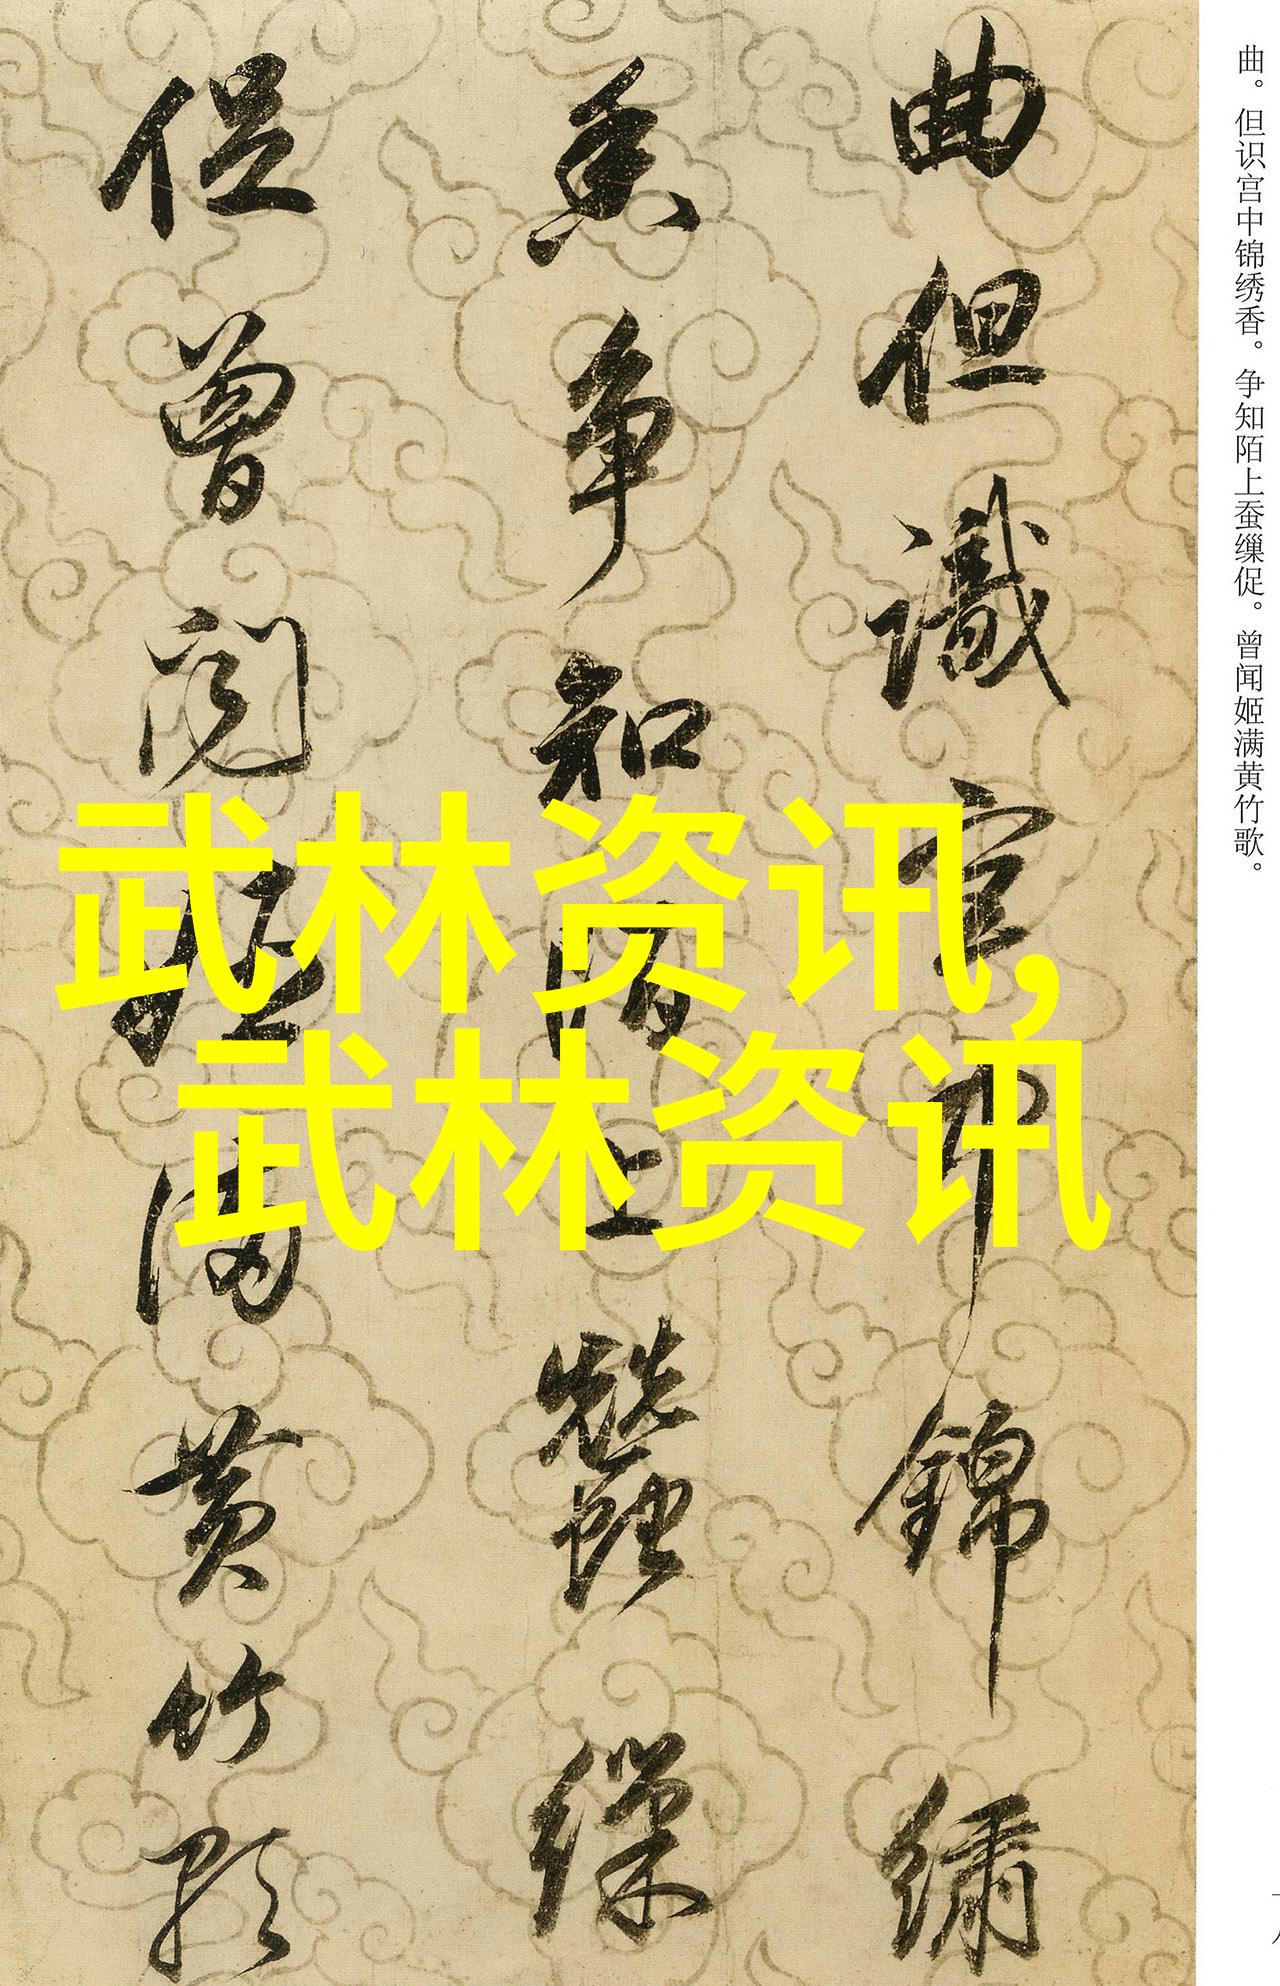 曲但識宮中錦繡
香争知陌上蠶繅
促曾聞姬滿黄竹歌
曲。但识宫中锦绣香。争知陌上蚕缫促。曾闻姬满黄竹歌。
武林资讯,
武林资讯